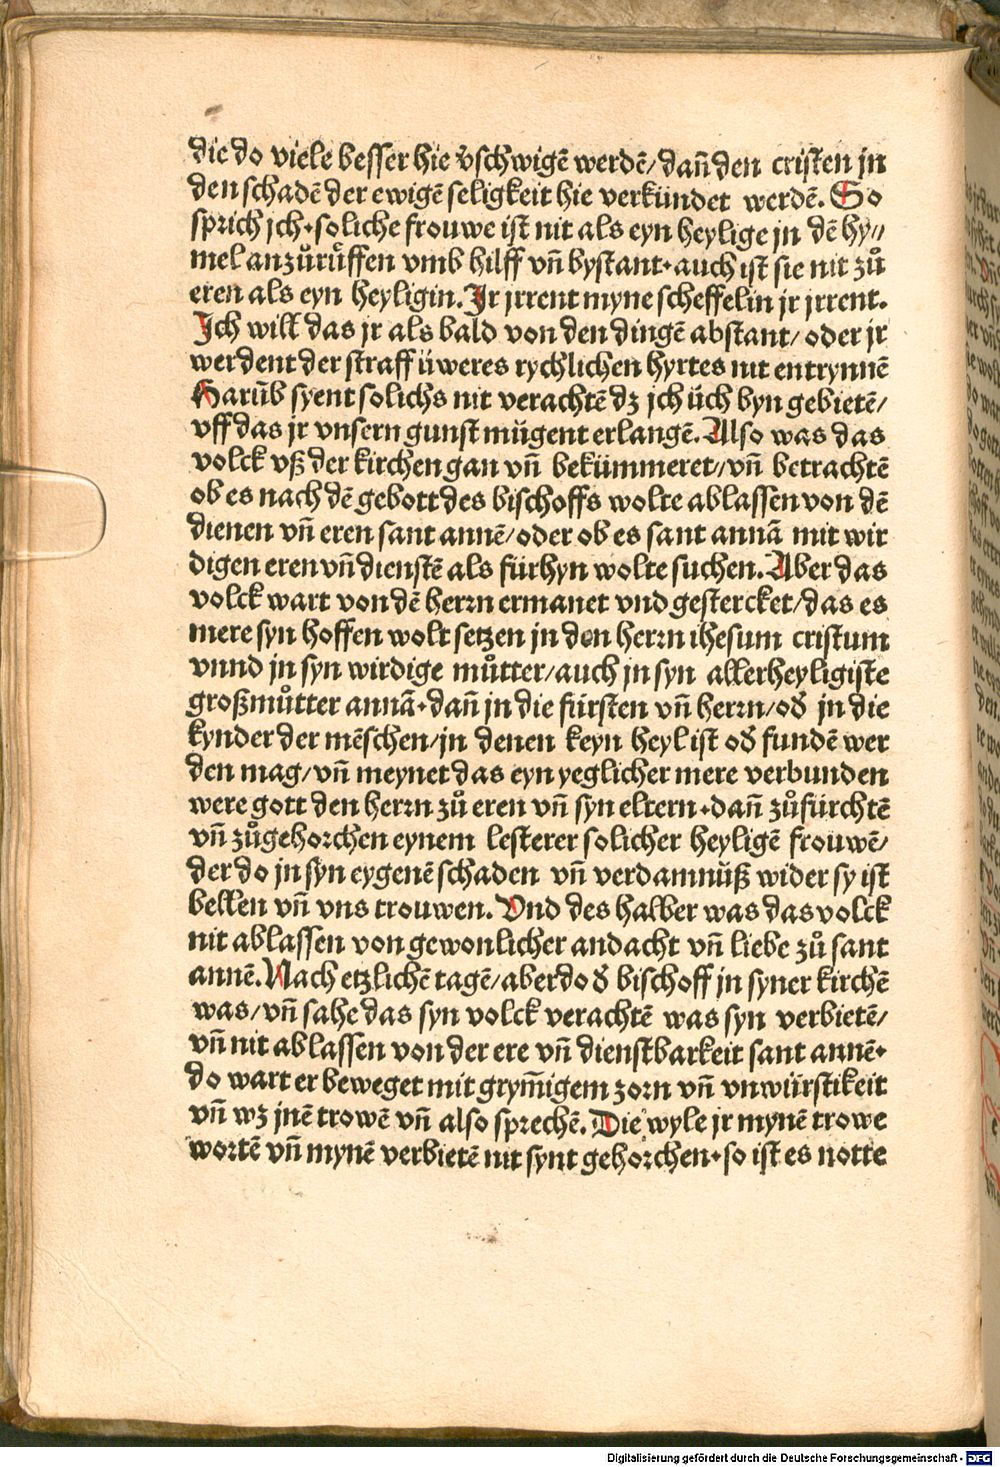 die do viele besser hie v̄schwigē werdē/dan̄ den cristen jn
den schadē der ewigē seligkeit hie verkündet werdē. So
sprich jch·soliche frouwe ist nit als eyn heylige jn dē hy⸗
mel anzůrůffen vmb hilff vn̄ bystant·auch ist sie nit zů
eren als eyn heyligin. Jr jrrent myne scheffelin jr jrrent.
Jch will das jr als bald von den dingē abstant/oder jr
werdent der straff üweres rychlichen hyrtes nit entrynnē
Harūb syent solichs nit verachtē dz jch üch byn gebietē/
vff das jr vnsern gunst mügent erlangē. Also was das
volck vß der kirchen gan vn̄ bekümmeret⸗vn̄ betrachtē
ob es nach dē gebott des bischoffs wolte ablassen von dē
dienen vn̄ eren sant annē/oder ob es sant annā mit wir
digen eren vn̄ dienstē als fürhyn wolte suchen. Aber das
volck wart von dē herrn ermanet vnd gestercket/das es
mere syn hoffen wolt setzen jn den herrn ihesum cristum
vnnd jn syn wirdige můtter/auch jn syn allerheyligiste
großmůtter annā·dan̄ jn die fürsten vn̄ herrn/od̄ jn die
kynder der mēschen/jn denen keyn heyl ist od̄ fundē wer
den mag/vn̄ meynet das eyn yeglicher mere verbunden
were gott den herrn zů eren vn̄ syn eltern·dan̄ zůfürchtē
vn̄ zůgehorchen eynem lesterer solicher heyligē frouwē/
der do jn syn eygenē schaden vn̄ verdamnüß wider sy ist
bellen vn̄ vns trouwen. Vnd des halber was das volck
nit ablassen von gewonlicher andacht vn̄ liebe zů sant
annē. Nach etzlichē tagē/aber do d̄ bischoff jn syner kirchē
was/vn̄ sahe das syn volck verachtē was syn verbietē/
vn̄ nit ablassen von der ere vn̄ dienstbarkeit sant annē·
do wart er beweget mit grym̄igem zorn vn̄ vnwürstikeit
vn̄ wz jnē trowē vn̄ also sprechē. Die wyle jr mynē trowe
wortē vn̄ mynē verbietē nit synt gehorchen·so ist es notte
Digitalisierung gefördert durch die Deutsche Forschungsgemeinschaft - DFG